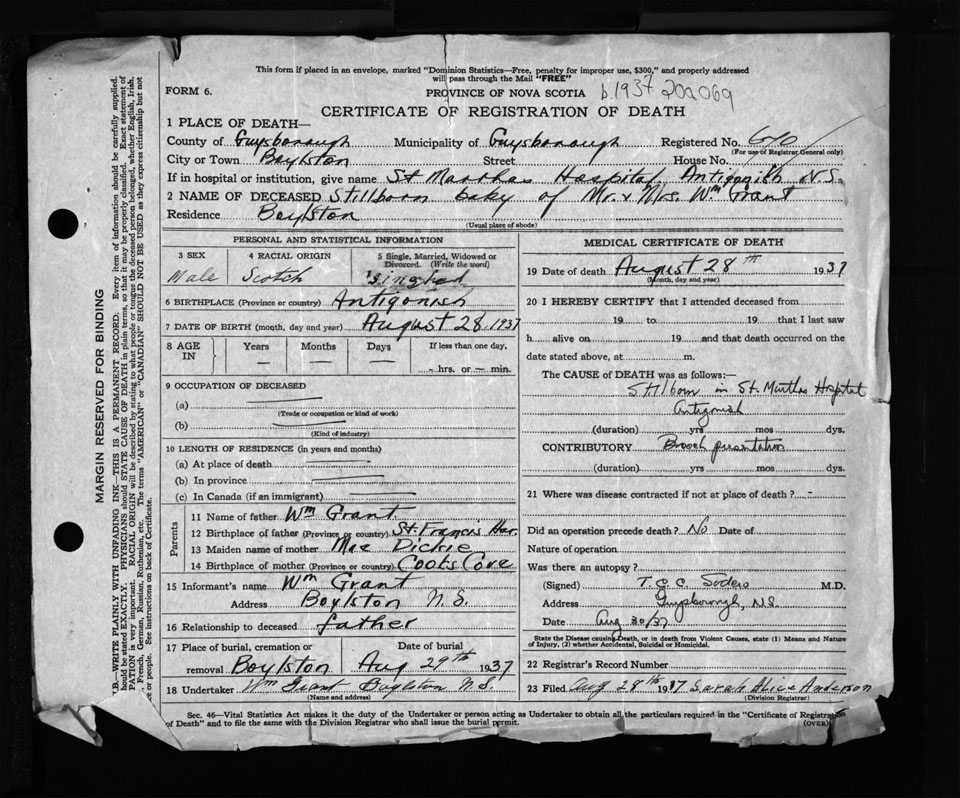 This form if placed in an envelope, marked "Dominion Statistics—Free, penalty for improper use, $300," and properly addressed
will pass through the Mail "FREE"
FORM 6.
PROVINCE OF NOVA SCOTIA b.1937 20a069
CERTIFICATE OF REGISTRATION OF DEATH
1 PLACE OF DEATH—
County of Guysborough Municipality of Guysborough Registered No.
(For use of Registrar General only)
City or Town Boylston Street House No.
If in hospital or institution, give name St Marthas Hospital Antigonish N.S.
2 NAME OF DECEASED Stillborn baby of Mr. & Mrs. Wm Grant
Residence Boylston
(Usual place of abode)
PERSONAL AND STATISTICAL INFORMATION
3 SEX 4 RACIAL ORIGIN 5 Single, Married, Widowed or
Divorced. (Write the word)
Male Scotch Single
6 BIRTHPLACE (Province or country) Antigonish
7 DATE OF BIRTH (month, day and year) August 28, 1937
8 AGE IN Years Months Days If less than one day,
— — — - hrs. or — min.
9 OCCUPATION OF DECEASED
(a)
(Trade or occupation or kind of work)
(b)
(Kind of industry)
10 LENGTH OF RESIDENCE (in years and months)
(a) At place of death
(b) In province
(c) In Canada (if an immigrant)
Parents
11 Name of father Wm Grant
12 Birthplace of father (Province or country) St. Francis Har.
13 Maiden name of mother Mae Dickie
14 Birthplace of mother (Province or country) Cooks Cove
15 Informant's name Wm Grant
Address Boylston N.S.
16 Relationship to deceased father
17 Place of burial, cremation or Date of burial
removal Boylston Aug 29th 1937
18 Undertaker Wm Grant Boylston N.S.
(Name and address)
MEDICAL CERTIFICATE OF DEATH
19 Date of death August 28th 1937
(Month, day and year)
20 I HEREBY CERTIFY that I attended deceased from
19 to 19 that I last saw
h alive on 19 and that death occurred on the
date stated above, at m.
The CAUSE OF DEATH was as follows:—
Stillborn in St. Marthas Hospital
Antigonish
(duration) yrs mos dys.
CONTRIBUTORY Breech presentation
(duration) yrs mos dys.
21 Where was disease contracted if not at place of death? -
Did an operation precede death? No Date of
Nature of operation
Was there an autopsy?
(Signed) T.C.C. Sodero M.D.
Address Guysborough, N.S.
Date Aug 30/37
State the Disease causing Death, or in death from Violent Causes, state (1) Means and Nature
of Injury, (2) whether Accidental, Suicidal or Homicidal.
22 Registrar's Record Number
23 Filed Aug 28th 1937 Sarah Alice Anderson
(Division Registrar)
Sec. 46—Vital Statistics Act makes it the duty of the Undertaker or person acting as Undertaker to obtain all the particulars required in the "Certificate of Registration
of Death" and to file the same with the Division Registrar who shall issue the burial permit. (OVER)
MARGIN RESERVED FOR BINDING
N.B.—WRITE PLAINLY WITH UNFADING INK—THIS IS A PERMANENT RECORD. Every item of information should be carefully supplied.
should be stated EXACTLY. PHYSICIANS should STATE CAUSE OF DEATH in plain terms, so that it may be properly classified. Exact statement of
PATION is very important. RACIAL ORIGIN will be described by stating to what people or tongue the deceased person belonged, whether English, Irish,
French, German, Russian, Ruthenian, etc. The terms "AMERICAN" or "CANADIAN" SHOULD NOT BE USED as they express citizenship but not
or people. See instructions on back of Certificate.